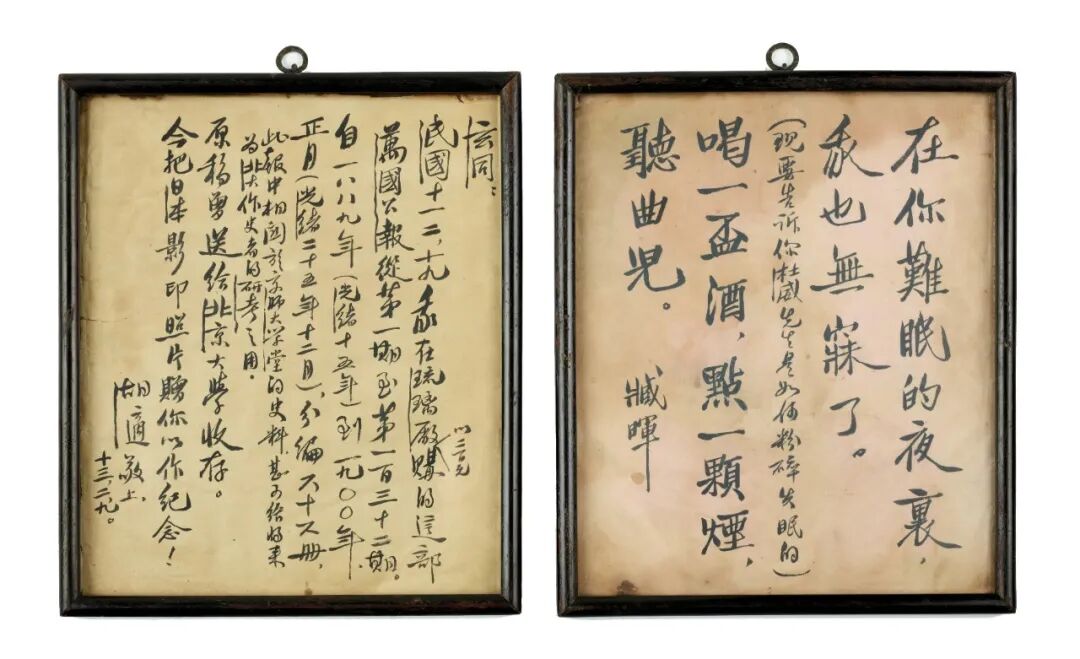 玄同：
民國十一、二、十九我在琉璃厰購的這部
萬國公報從第一期至第一百三十二期。
自一八八九年（光緒十五年）到一九〇〇年
正月（光緒二十五年十二月），分編六十六册，
此報中相関於京師大学堂的史料甚可給將來
為北大作史者的研考之用。
原稿曾送給北京大學收存。
今把日本影印照片贈你以作紀念！
胡適敬上。
十三、二、九。
在你難眠的夜裏，
我也無寐了。
（現要告訴你杜威先生是如何粉碎失眠的）
喝一盃酒，點一顆煙，
聽曲児。
臧暉